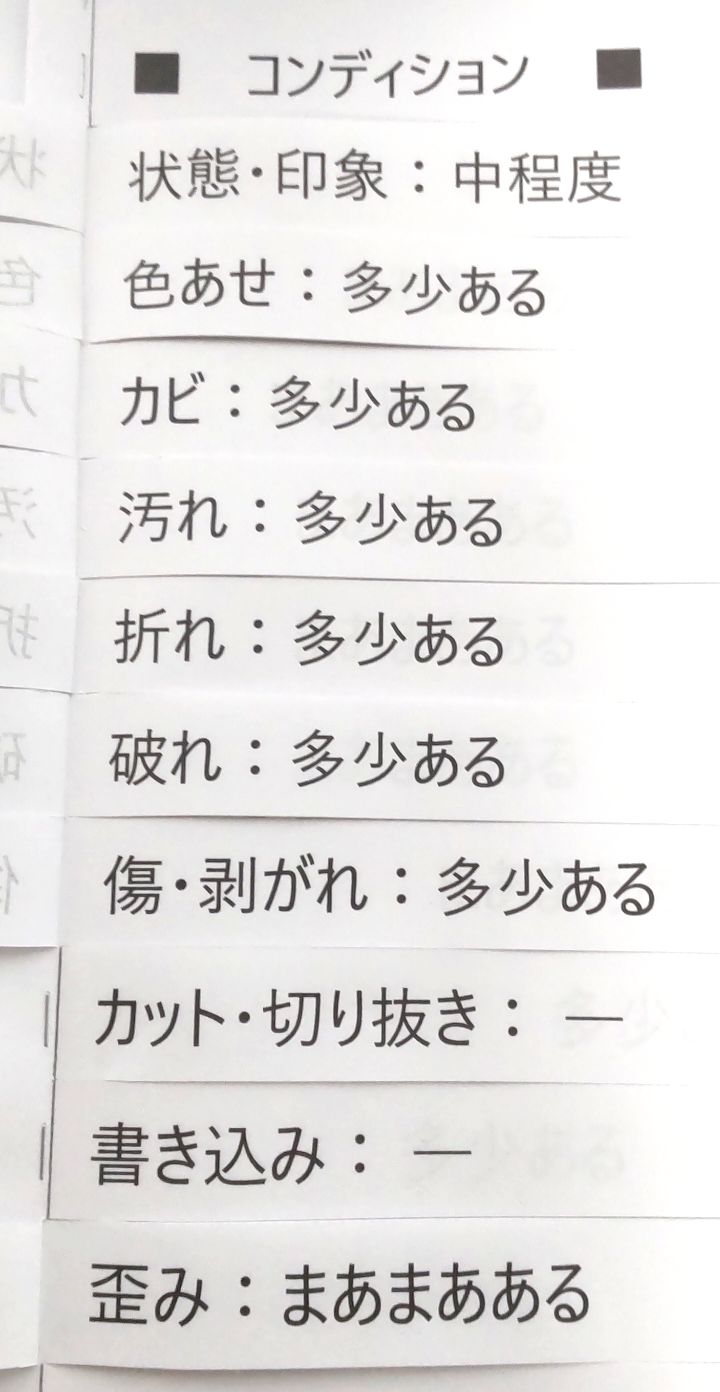 ■ コンディション ■
状態・印象：中程度
色あせ：多少ある
カビ：多少ある
汚れ：多少ある
折れ：多少ある
破れ：多少ある
傷・剥がれ：多少ある
カット・切り抜き： ―
書き込み： ―
歪み：まあまあある